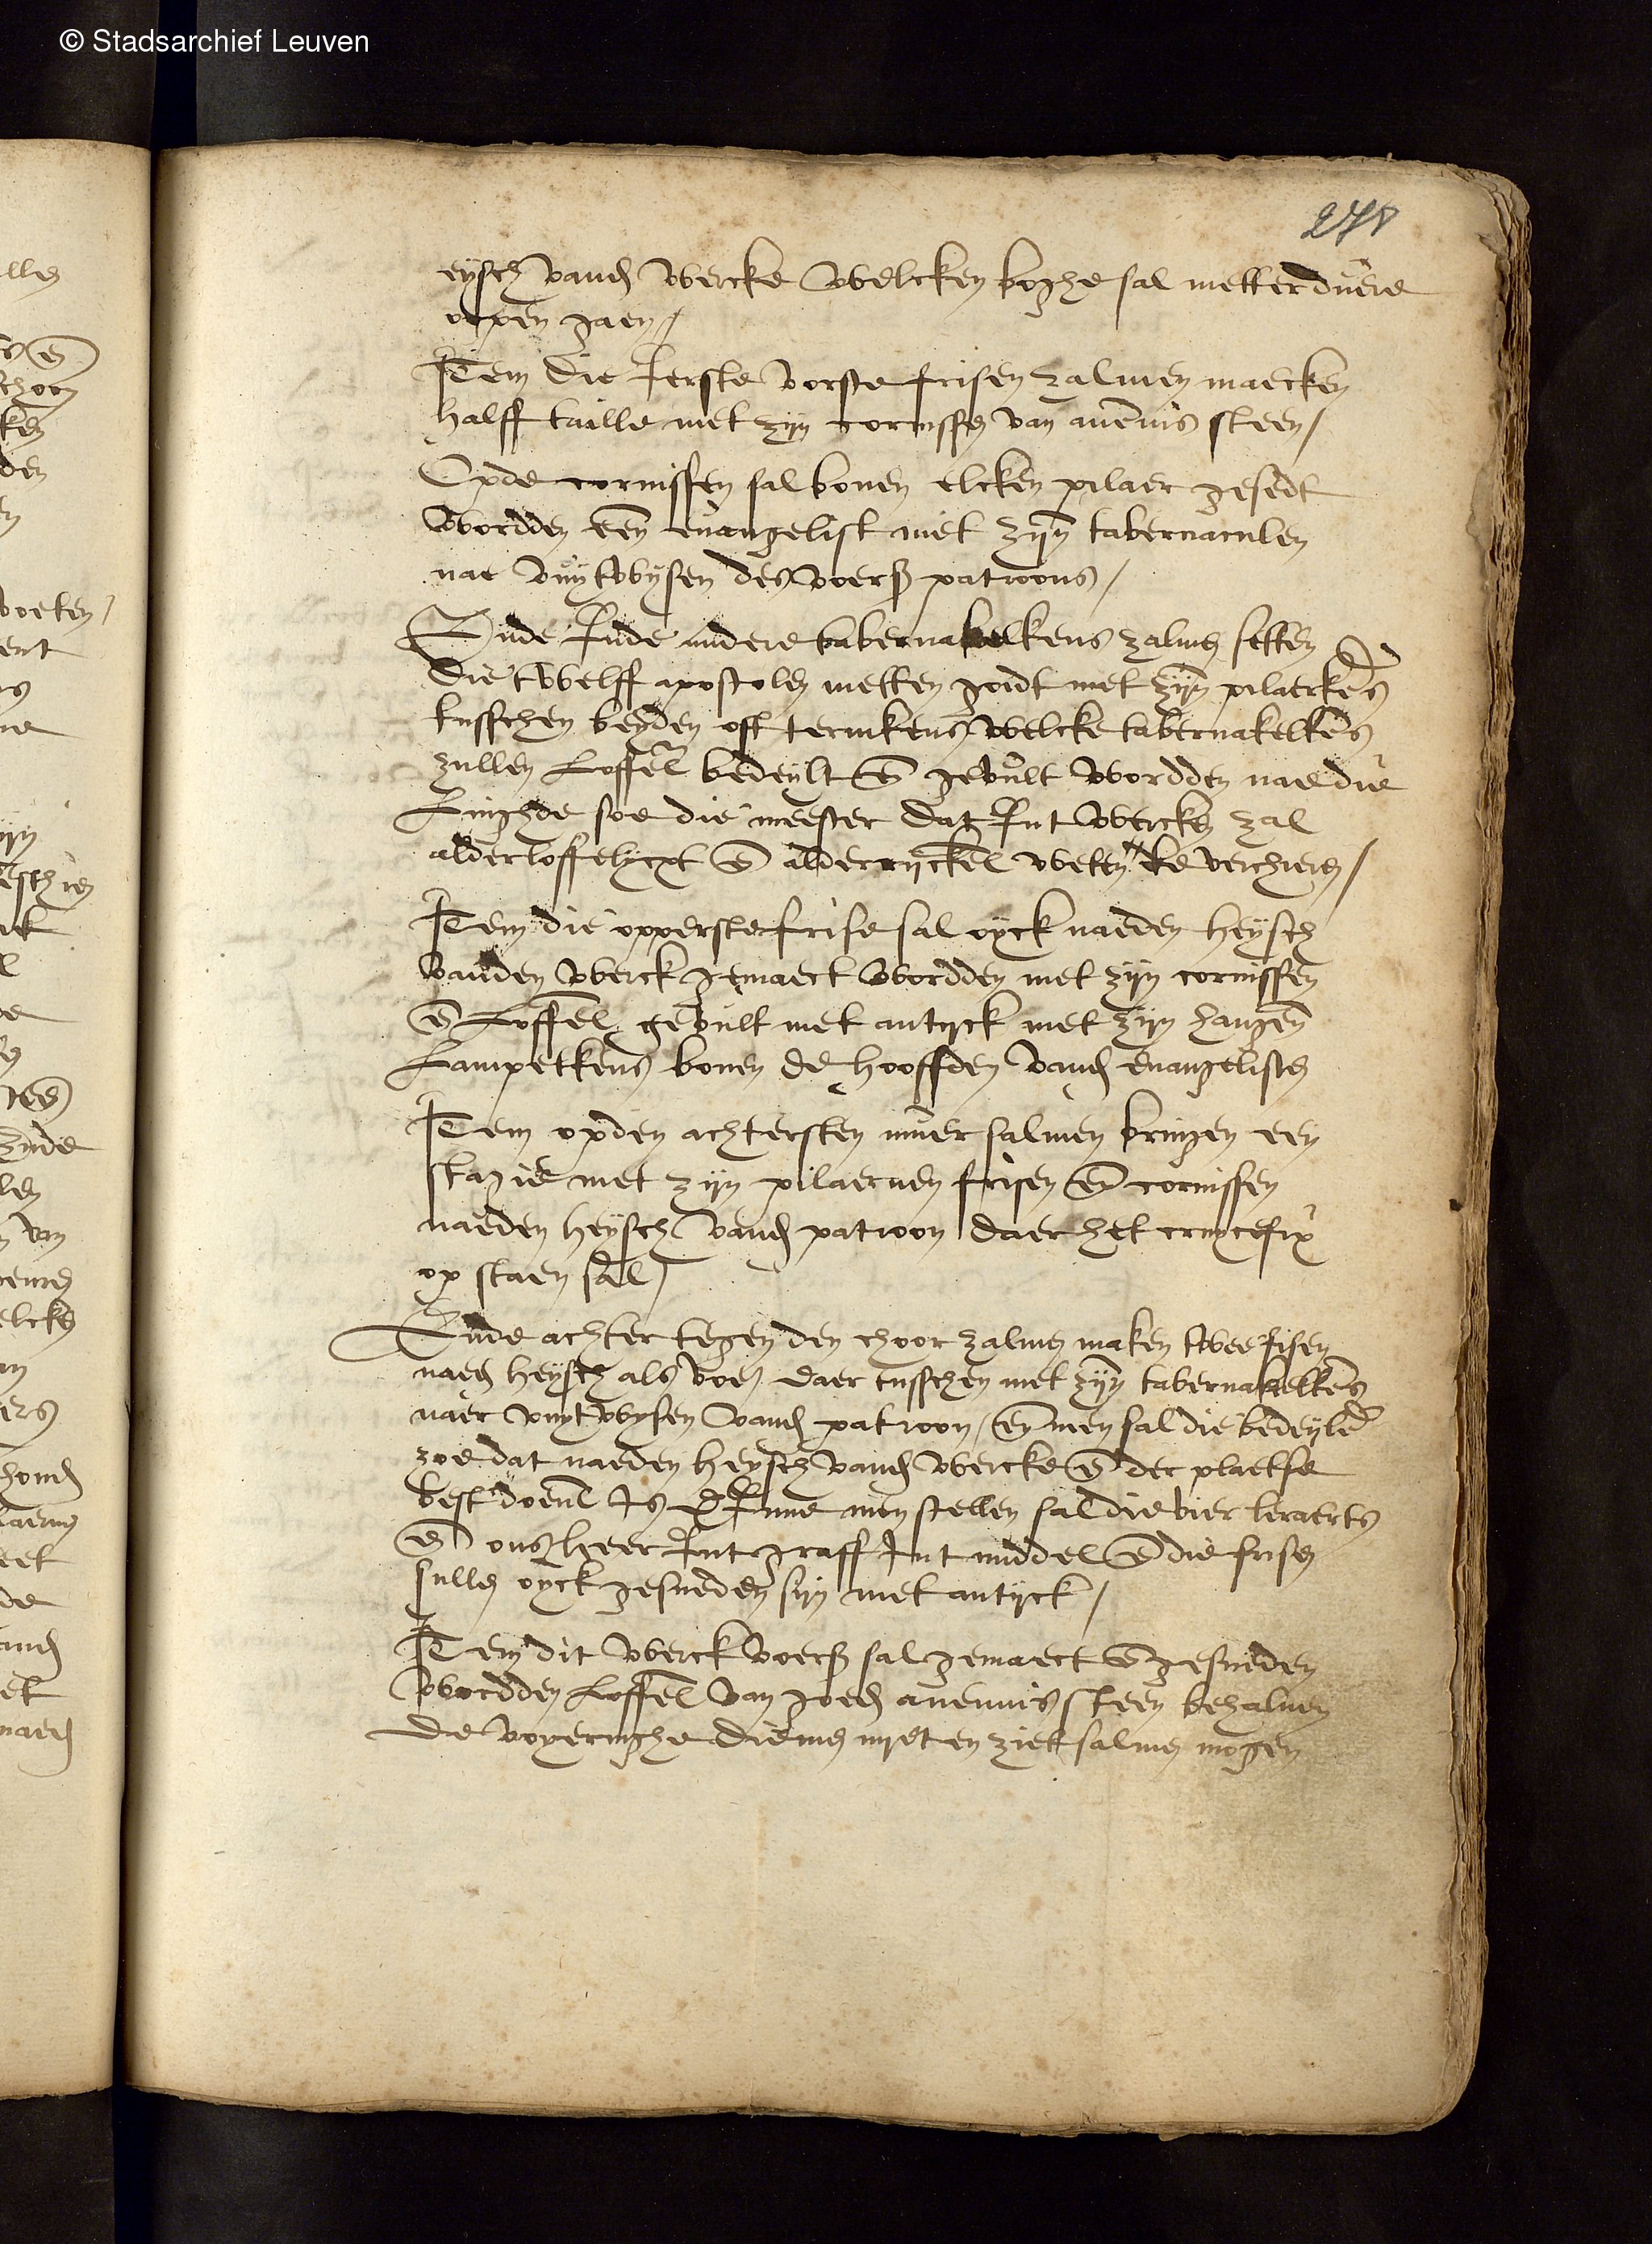 © Stadsarchief Leuven
278
eysch vand wercke welcken boghe sal metter duere
open gaen /
Item die ierste vorste frisen zalmen maecken
halff taille met zyn cornissen van avennis steen /
Opde cornissen sal boven elcken pilaer gesedt
wordden een evangelist met zyn tabernaculen
nae vuytwysen des voers patroons /
Ende inde andere tabernakelkens zalmen setten
die twelff apostolen metten godt met zyn pilaerkens
tusschen beyden oft termkens welcke tabernakelkens
zullen loffel bedeylt en gevult wordden nae die
linghde soe die meester dat int wercke zal
alderloffelycxt en alderryckel weten te verchieren /
Item die opperste frise sal oyck naeden heysch
vanden werck gemaect wordden met zyn cornissen
en loffel gevult met antyck met zyn hangen
lampetkens boven de hooffden vand evangelisten
Item opden achtersten muer salmen bringen een
stagie met zyn pilaernen frisen en cornissen
naeden heysch vand patroon daer het crucefix
op staen sal /
Ende achter tegen den choor zalmen maken twee frisen
naed heysch als voer daer tusschen met zyn tabernakelkens
naer vuytwysen vand patroon / en men sal die bedeylen
zoe dat naeden heysch vand wercke en der plaetse
best doenl is inne men stellen sal die vier leraerts
en ons heer int graff int middel en die frisen
sullen oyck gesneden syn met antyck /
Item dit werck voers sal gemaect en gesneden
wordden loffel van goed avennis steen behalven
de voyeringhe diemen nyet en ziet salmen mogen